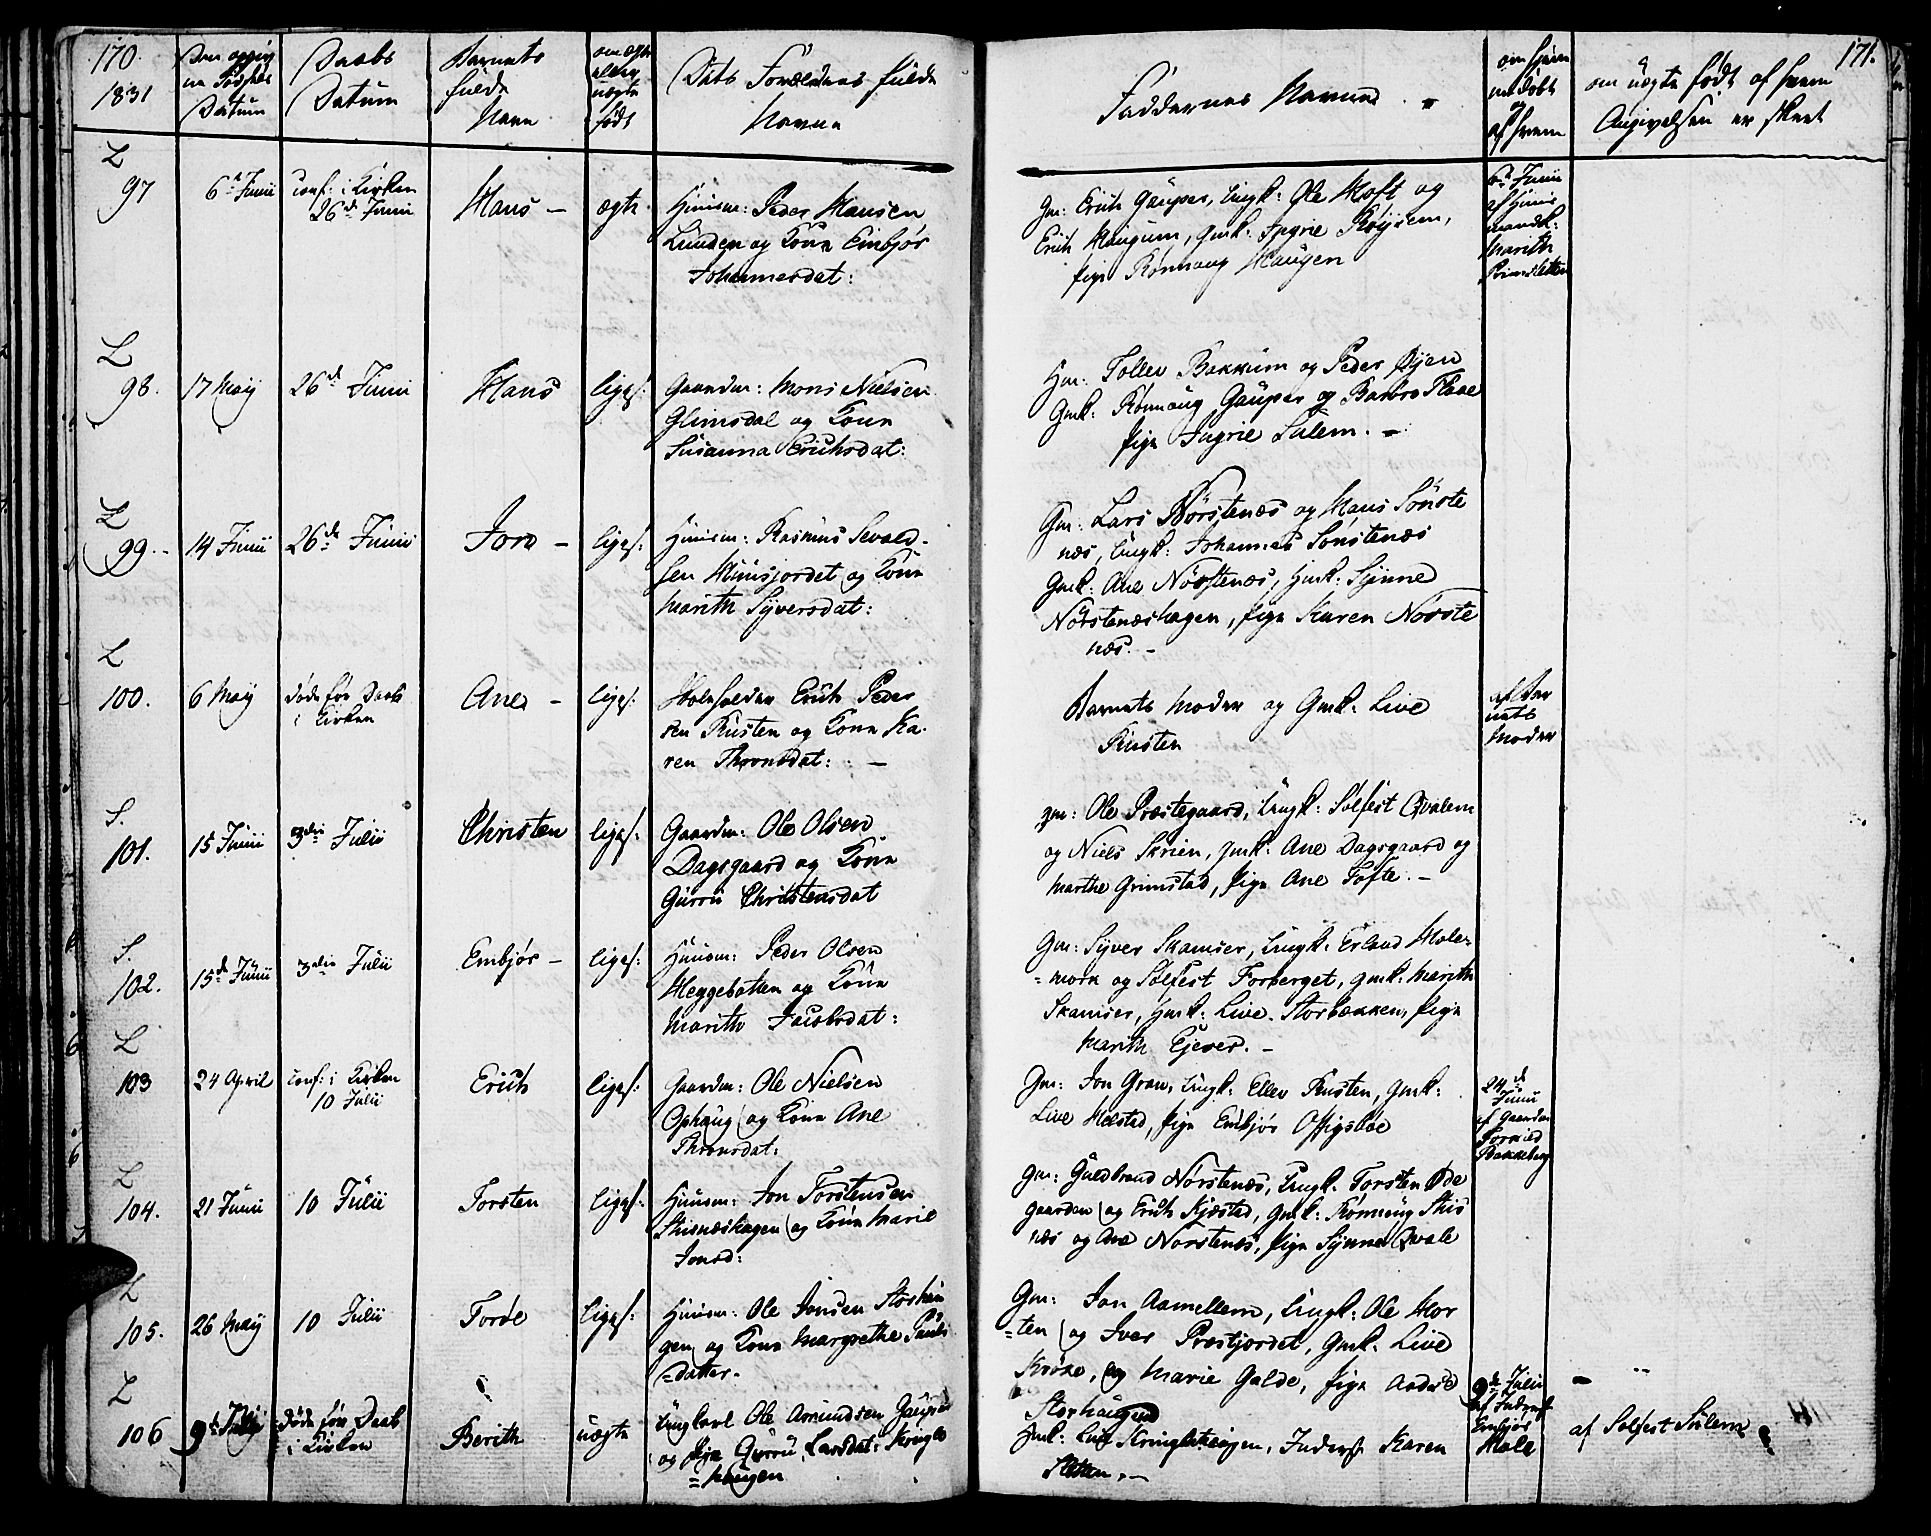 170.
1831
Datum
Daabs
Datum
Barnets
fulde
Navn
om ægte
eller
uægte
født
Dets Forældres fulde
Navne
Faddernes Navne
om hjem
medøbt
og
af hvem
om uægte født af hvem
Angivelsen er skeet
171.
L
97
6te Junii
conf: i Kirken
26de Junii
Hans -
ægte
Huusm: Peder Hansen
Lunden og Kone Embjør
Johannesdat:
Gm: Erich Gauper, Ungk: Ole Hoft og
Erich Haugum, Gmk: Ingrie Røysem,
Pige Rønnoug Haugen
6te Junii
af Huus
mandk:
Marith
L
98.
17 May
26de Junii
Hans
liges:
Gaardm: Mons Nielsen
Glimsdal og Kone
Susanna Erichsdat:
Gm: Tollev Bakkum og Peder Øyen
Gmk: Rønnoug Gauper og Barbro Flaae
Pige Ingrie Sulem. -
L
99.
14 Junii
26de Junii
Joro -
liges:
Huusm: Rasmus Sevald-
sen Huusjordet og Kone
Marith Syversdat:
Gm: Lars Nørstenæs og Hans Sønste
næs, Ungk: Johannes Sønstenæs
Gmk: Ane Nørstenæs, Hmk: Synne
Nørstenæshagen, Pige Karen Nørste
næs. -
L
100.
6 May
døde før Daab
i Kirken
Ane -
ligs:
Erich Peder
sen Rusten og Kone Ka-
ren Thronsdat: -
Barnets Moder og Gmk: Live
Rusten
af Bar
nets
Moder
S.
101.
15 Junii
3die Julii
Christen
ligs:
Gaardm: Ole Olsen
Dagsgaard og Kone
Gurru Christensdat
Gm: Ole Præstegaard, Ungk: Solfest Qvalem
og Niels Skrien, Gmk: Ane Dagsgaard og
Marthe Grimstad, Pige Ane Tofte. -
S.
102.
15de Junii
3die Julii
Embjør -
ligs:
Huusm: Peder Olsen
Heggebotten og Kone
Marith Jacobsdat:
Gm: Syver Skamser, Ungk: Erland Hole-
=moen og Solfest Forberget, Gmk: Marith
Skamser, Hmk: Live Storbækken, Pige
Marith Ejever. -
L
103
24 April
conf: i Kirken
10 Julii
Erich
ligs:
Gaardm: Ole Nielsen
Ophaug og Kone Ane
Thronsdat:
Gm: Jon Grov, Ungk: Ellev Rusten, Gmk:
Live Helstad, Pige Embjør Offigsbøe
24de
Junii
af Gaardm
Bakkeberg
L
104.
21 Junii
10 Julii
Torsten
ligs:
Huusm: Jon Torstensen
og Kone Marie
Jonsd:
Gm: Guldbrand Nørstenæs, Ungk: Torsten Øde
gaarden og Erich Kjøstad, Gmk: Rønnoug
næs og Ane Norstenæs, Pige Synnev Qvale
L
105.
26 May
10 Julii
Torde
ligs:
Huusm: Ole Jonsen Storhau
gen og Kone Margrethe Pauls
=datter.
Gm: Jon Aamellem, Ungk: Ole Mor
=ten og Iver Præstjordet, Gmk: Live
Kroke, og Marie Galde, Pige
Storhaugen
L
106
9de
døde før Daab
i Kirken
Berith
uægte
Ungkarl Ole Amundsen Gauper
og Pige Gurru Larsdat: Kringle
=haugen
Gmk: Kringlehaugen, Inderst Karen
Sletten. -
9de Julii
af Inderst
Embjør
Hole
af Solfest Sulem